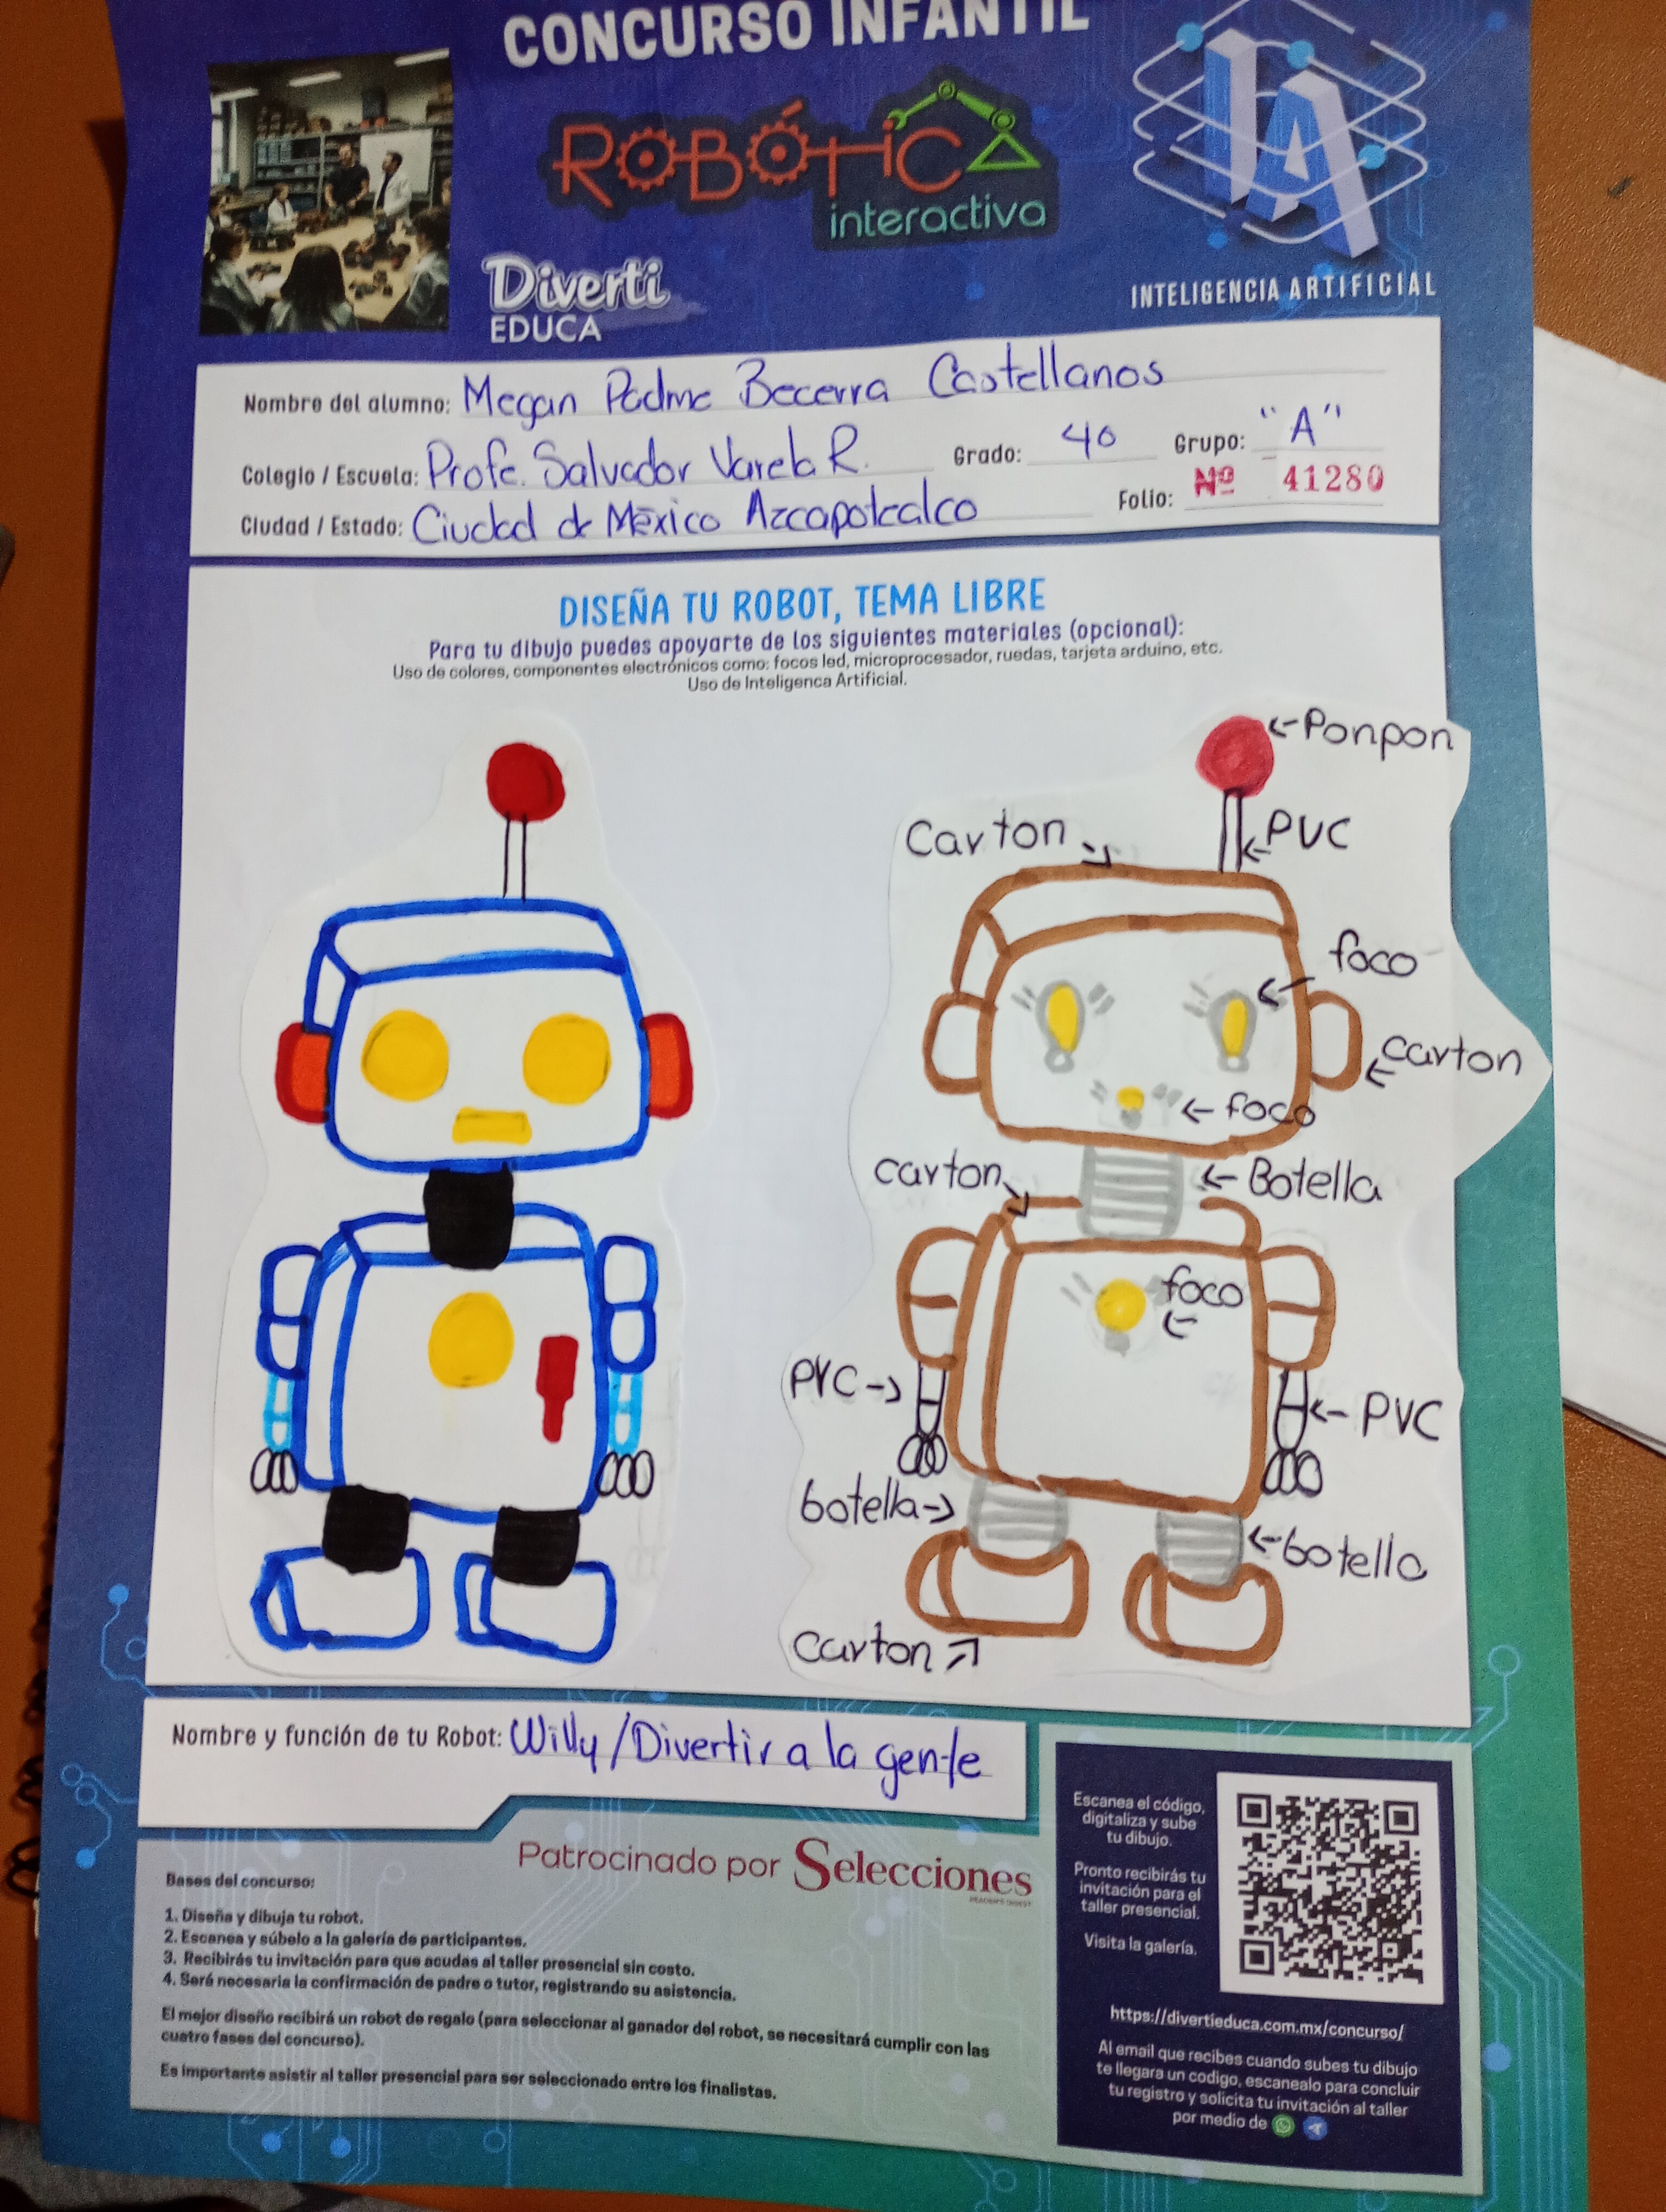 CONCURSO INFANTIL
RObÓTiCA
interactiva
Diverti
EDUCA
IA
INTELIGENCIA ARTIFICIAL
Nombre del alumno: Megan Padme Becerra Castellanos
Colegio / Escuela: Profe. Salvador Varela R. Grado: 4o Grupo: "A"
Ciudad / Estado: Ciudad de México Azcapotzalco Folio: Nº 41280
DISEÑA TU ROBOT, TEMA LIBRE
Para tu dibujo puedes apoyarte de los siguientes materiales (opcional):
Uso de colores, componentes electrónicos como: focos led, microprocesador, ruedas, tarjeta arduino, etc.
Uso de Inteligenca Artificial.
←Ponpon
Carton
←PVC
foco
carton
← foco
carton
← Botella
foco
PVC→
←PVC
botella→
←botella
carton
Nombre y función de tu Robot: Willy/Divertir a la gente
Patrocinado por Selecciones
READER'S DIGEST
Bases del concurso:
1. Diseña y dibuja tu robot.
2. Escanea y súbelo a la galería de participantes.
3. Recibirás tu invitación para que acudas al taller presencial sin costo.
4. Será necesaria la confirmación de padre o tutor, registrando su asistencia.
El mejor diseño recibirá un robot de regalo (para seleccionar al ganador del robot, se necesitará cumplir con las
cuatro fases del concurso).
Es importante asistir al taller presencial para ser seleccionado entre los finalistas.
Escanea el código,
digitaliza y sube
tu dibujo.
Pronto recibirás tu
invitación para el
taller presencial.
Visita la galería.
https://divertieduca.com.mx/concurso/
Al email que recibes cuando subes tu dibujo
te llegara un codigo, escanealo para concluir
tu registro y solicita tu invitación al taller
por medio de